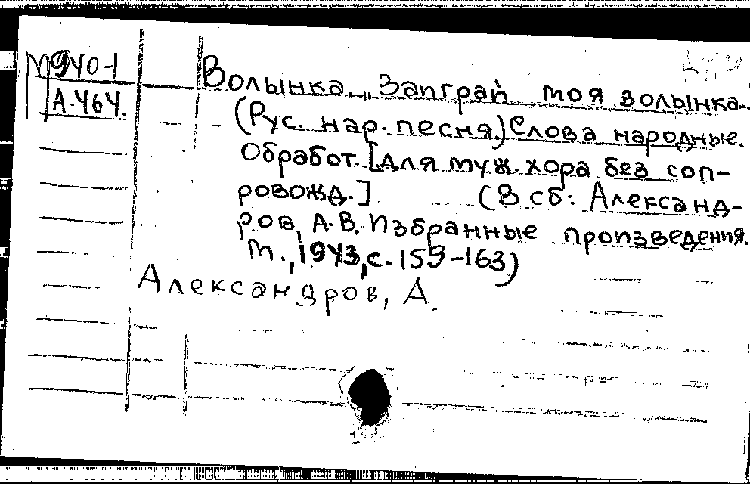 М940-1
А.464.
Волынка. „Заиграй моя волынка.
(Рус. нар. песня.) Слова народные.
Обработ. [для муж. хора без соп-
ровожд.] (В сб: Александ-
ров, А.В. Избранные произведения.
М., 1973, с. 159-163)
Александров, А.